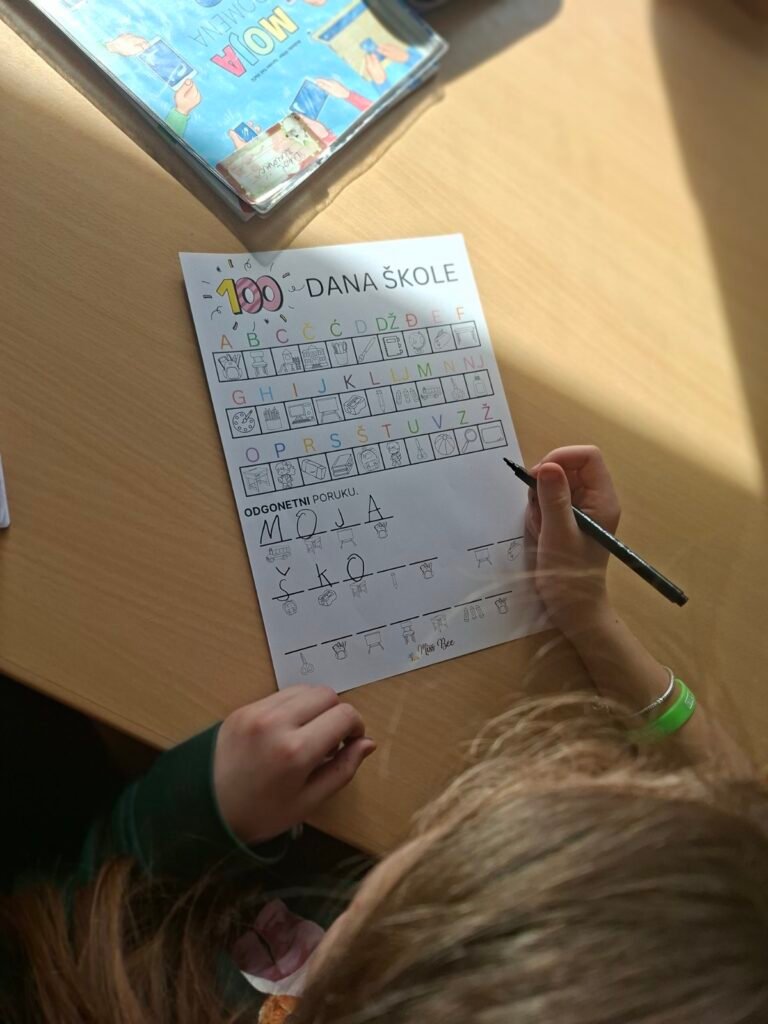 MOJA
DOMENA
100 DANA ŠKOLE
A B C Č Ć D DŽ Đ E F
G H I J K L LJ M N NJ
O P R S Š T U V Z Ž
ODGONETNI PORUKU.
MOJA
ŠKO
Miss Bee